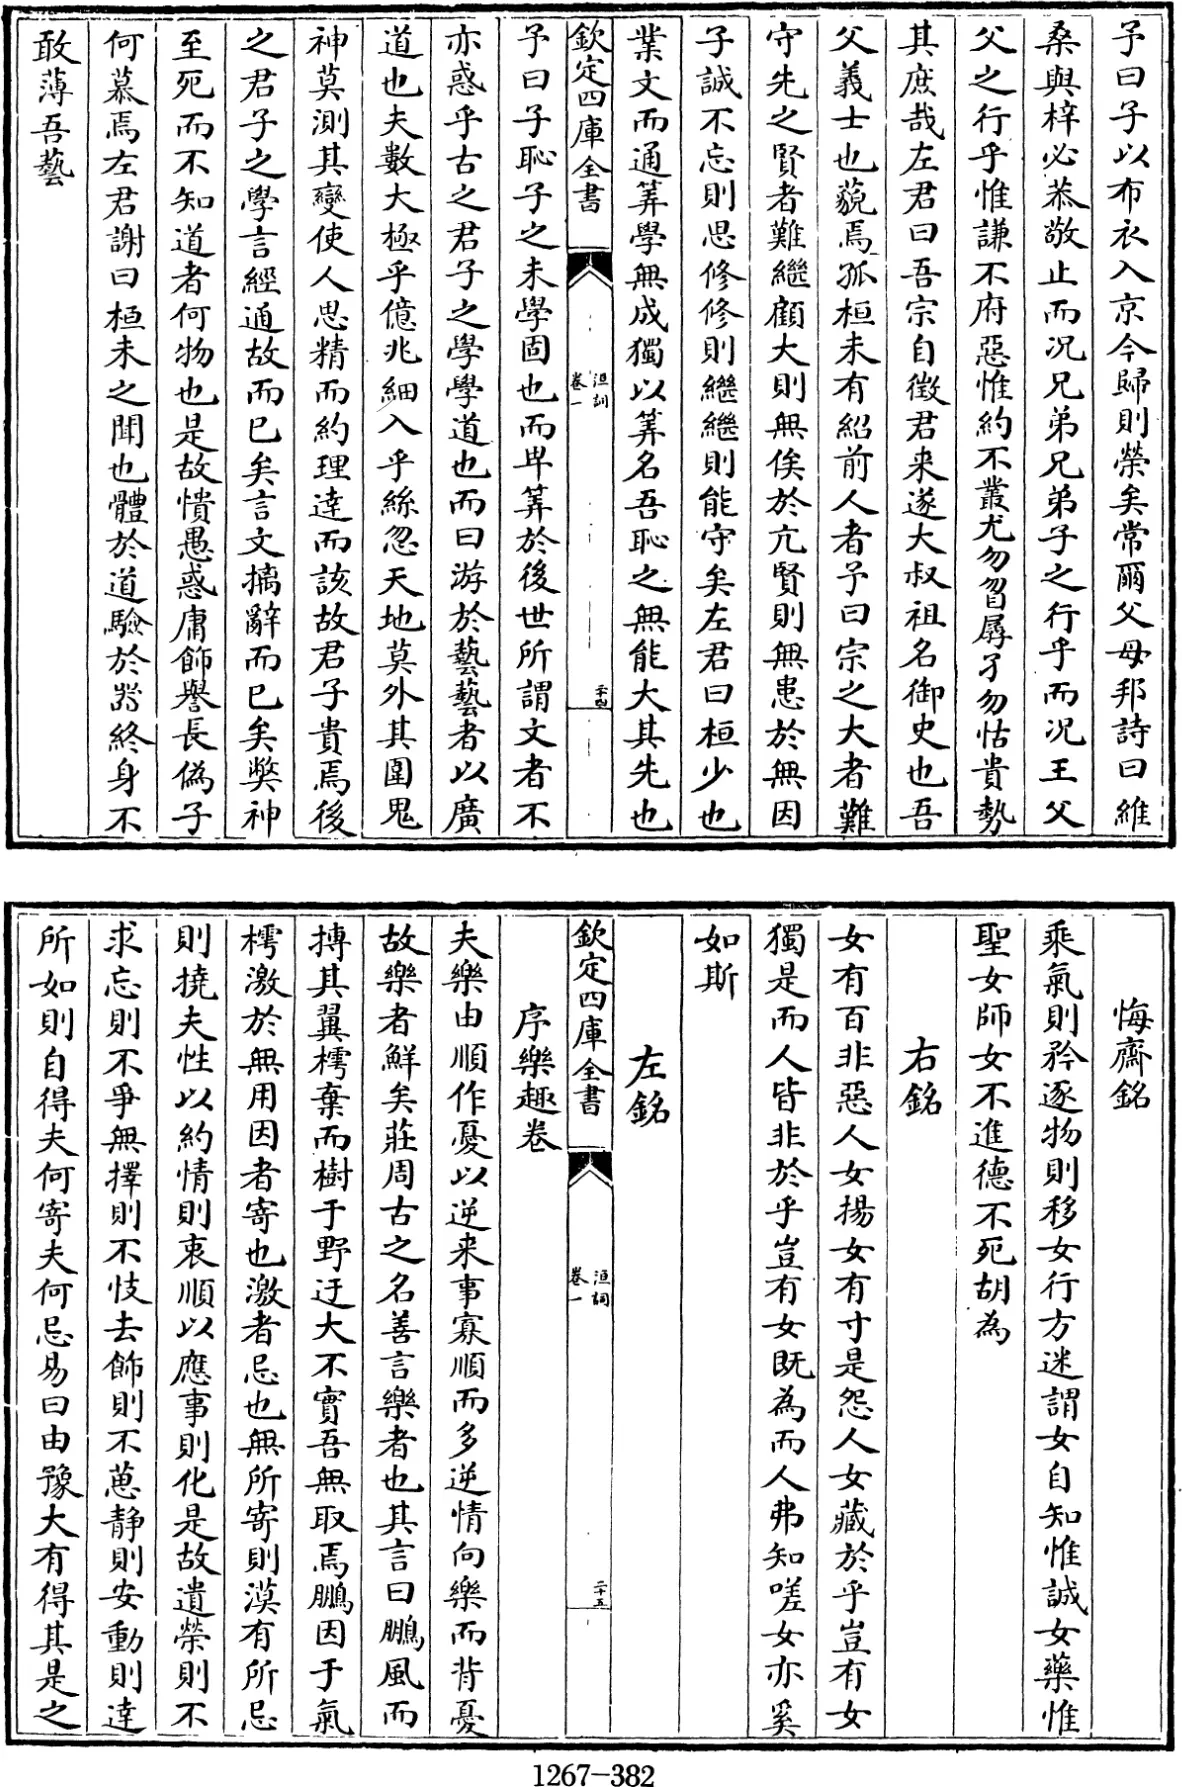 予曰子以布衣入京今歸則榮矣常爾父母邦詩曰維
桑與梓必恭敬止而況兄弟兄弟子之行乎而況王父
父之行乎惟謙不府惡惟約不叢尤勿曶孱孑勿怙貴勢
其庶哉左君曰吾宗自徵君来遂大叔祖名御史也吾
父義士也藐焉孤桓未有紹前人者予曰宗之大者難
守先之賢者難繼顧大則無俟於亢賢則無患於無因
子誠不忘則思修修則繼繼則能守矣左君曰桓少也
業文而通筭學無成獨以筭名吾恥之無能大其先也
欽定四庫全書
洹詞
卷一
二十四
予曰子恥子之未學固也而卑筭於後世所謂文者不
亦惑乎古之君子之學學道也而曰游於藝藝者以廣
道也夫數大極乎億兆細入乎絲忽天地莫外其圍鬼
神莫測其變使人思精而約理達而該故君子貴焉後
之君子之學言經通故而已矣言文摛辭而已矣獘神
至死而不知道者何物也是故憒愚惑庸飾譽長偽子
何慕焉左君謝曰桓未之聞也體於道驗於器終身不
敢薄吾藝
悔齋銘
乘氣則矜逐物則移女行方迷謂女自知惟誠女藥惟
聖女師女不進德不死胡為
右銘
女有百非惡人女揚女有寸是怨人女藏於乎豈有女
獨是而人皆非於乎豈有女既為而人弗知嗟女亦奚
如斯
左銘
欽定四庫全書
洹詞
卷一
二十五
序樂趣卷
夫樂由順作憂以逆来事寡順而多逆情向樂而背憂
故樂者鮮矣莊周古之名善言樂者也其言曰鵬風而
摶其翼樗棄而樹于野迂大不實吾無取焉鵬因于氣
樗激於無用因者寄也激者忌也無所寄則漠有所忌
則撓夫性以約情則衷順以應事則化是故遺榮則不
求忘則不爭無擇則不忮去飾則不葸静則安動則達
所如則自得夫何寄夫何忌易曰由豫大有得其是之
1267-382